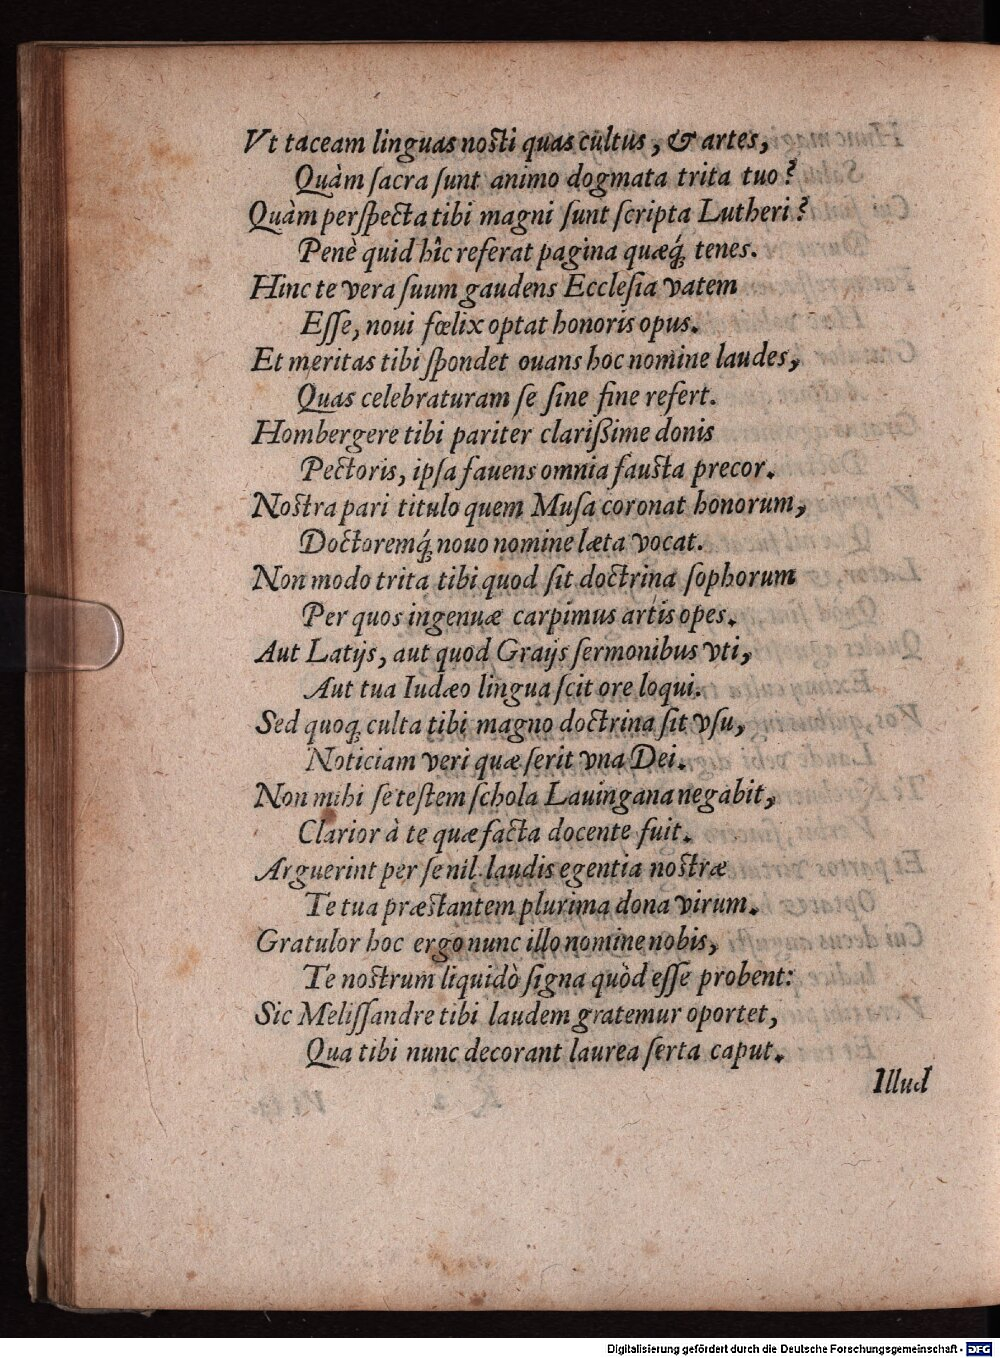 Vt taceam linguas nosti quas cultus, & artes,
Quàm sacra sunt animo dogmata trita tuo?
Quàm perspecta tibi magni sunt scripta Lutheri?
Penè quid hîc referat pagina quæq́; tenes.
Hinc te vera suum gaudens Ecclesia vatem
Esse, noui fœlix optat honoris opus.
Et meritas tibi spondet ouans hoc nomine laudes,
Quas celebraturam se sine fine refert.
Hombergere tibi pariter clarißime donis
Pectoris, ipsa fauens omnia fausta precor.
Nostra pari titulo quem Musa coronat honorum,
Doctoremq́; nouo nomine læta vocat.
Non modo trita tibi quod sit doctrina sophorum
Per quos ingenuæ carpimus artis opes.
Aut Latijs, aut quod Graijs sermonibus vti,
Aut tua Iudæo lingua scit ore loqui.
Sed quoq; culta tibi magno doctrina sit vsu,
Noticiam veri quæ serit vna Dei.
Non mihi se testem schola Lauingana negabit,
Clarior à te quæ facta docente fuit.
Arguerint per se nil laudis egentia nostræ
Te tua præstantem plurima dona virum.
Gratulor hoc ergo nunc illo nomine nobis,
Te nostrum liquidò signa quòd esse probent:
Sic Melissandre tibi laudem gratemur oportet,
Qua tibi nunc decorant laurea serta caput.
Illud
Digitalisierung gefördert durch die Deutsche Forschungsgemeinschaft - DFG